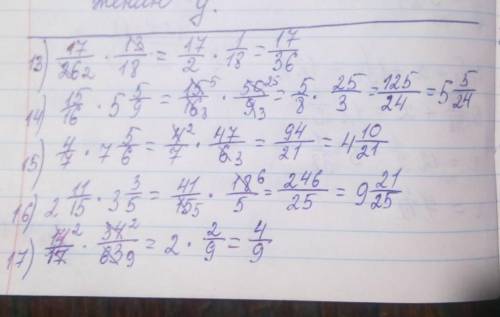 13) 17/262 · 13/18 = 17/2 · 1/18 = 17/36
14) 15/16 · 5 5/9 = 15⁵/16₈ · 50²⁵/9₃ = 5/8 · 25/3 = 125/24 = 5 5/24
15) 4/7 · 7 5/6 = 4²/7 · 47/6₃ = 94/21 = 4 10/21
16) 2 11/15 · 3 3/5 = 41/15₅ · 18⁶/5 = 246/25 = 9 21/25
17) 14²/17 · 34²/63₉ = 2 · 2/9 = 4/9